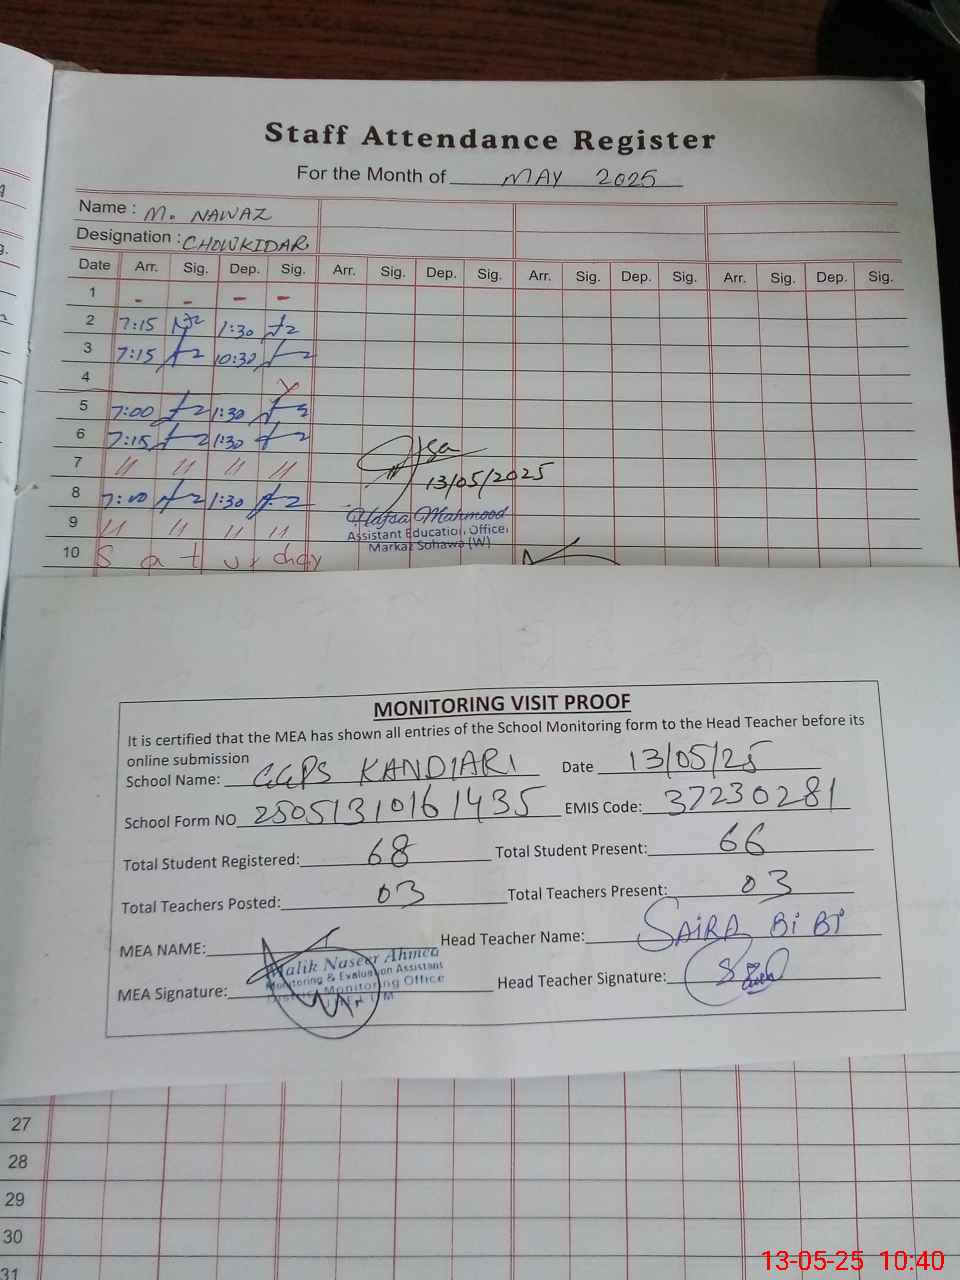 Staff Attendance Register
For the Month of MAY 2025
Name : M. NAWAZ
Designation : CHOWKIDAR
Date Arr. Sig. Dep. Sig. Arr. Sig. Dep. Sig. Arr. Sig. Dep. Sig. Arr. Sig. Dep. Sig.
1 - - - -
2 7:15 1:30
3 7:15 10:30
4
5 7:00 1:30
6 7:15 1:30
7 〃 〃 〃 〃
8 7:00 1:30
9 〃 〃 〃 〃
10 Saturday
13/05/2025
Hafsa Mahmood
Assistant Education Officer
Markaz Sohawa (W)
MONITORING VISIT PROOF
It is certified that the MEA has shown all entries of the School Monitoring form to the Head Teacher before its
online submission
School Name: GGPS KANDIARI Date 13/05/25
School Form NO 25051310161435 EMIS Code: 37230281
Total Student Registered: 68 Total Student Present: 66
Total Teachers Posted: 03 Total Teachers Present: 03
MEA NAME: Head Teacher Name: SAIRA BiBi
Malik Naseer Ahmed
Monitoring & Evaluation Assistant
District Monitoring Office
MEA Signature: Head Teacher Signature:
27
28
29
30
31
13-05-25 10:40